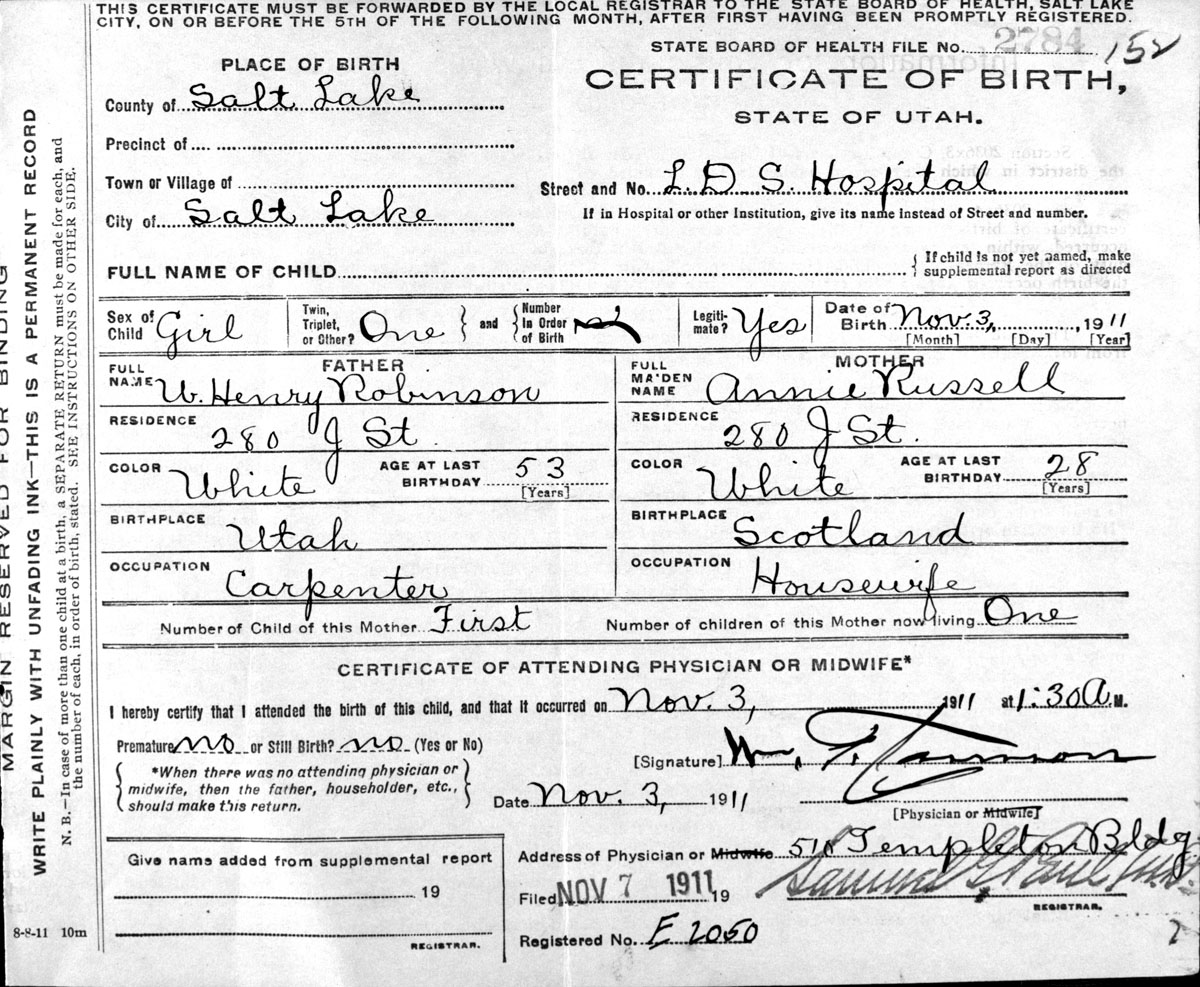 THIS CERTIFICATE MUST BE FORWARDED BY THE LOCAL REGISTRAR TO THE STATE BOARD OF HEALTH, SALT LAKE
CITY, ON OR BEFORE THE 5TH OF THE FOLLOWING MONTH, AFTER FIRST HAVING BEEN PROMPTLY REGISTERED.
STATE BOARD OF HEALTH FILE No. 2784 152
PLACE OF BIRTH
CERTIFICATE OF BIRTH,
STATE OF UTAH.
County of Salt Lake
Precinct of
Town or Village of
Street and No. L. D. S. Hospital
City of Salt Lake
If in Hospital or other Institution, give its name instead of Street and number.
FULL NAME OF CHILD
{ If child is not yet named, make
supplemental report as directed
Sex of Child Girl
Twin, Triplet, or Other? One } and { Number In Order of Birth
Legiti-mate? Yes
Date of Birth Nov. 3, 1911
[Month] [Day] [Year]
FATHER
FULL NAME W. Henry Robinson
RESIDENCE 280 J St.
COLOR White AGE AT LAST BIRTHDAY 53 [Years]
BIRTHPLACE Utah
OCCUPATION Carpenter
MOTHER
FULL MAIDEN NAME Annie Russell
RESIDENCE 280 J St.
COLOR White AGE AT LAST BIRTHDAY 28 [Years]
BIRTHPLACE Scotland
OCCUPATION Housewife
Number of Child of this Mother First Number of children of this Mother now living One
CERTIFICATE OF ATTENDING PHYSICIAN OR MIDWIFE*
I hereby certify that I attended the birth of this child, and that it occurred on Nov. 3, 1911 at 1:30 A. M.
Premature no or Still Birth? no (Yes or No)
{ *When there was no attending physician or
midwife, then the father, householder, etc.,
should make this return. }
[Signature] Wm. F.
Date Nov. 3, 1911
[Physician or Midwife]
Give name added from supplemental report
19
REGISTRAR.
Address of Physician or Midwife Templeton Bldg
Filed NOV 7 1911 19
REGISTRAR.
Registered No. E 2050
2
MARGIN RESERVED FOR BINDING
WRITE PLAINLY WITH UNFADING INK—THIS IS A PERMANENT RECORD
N. B.—In case of more than one child at a birth, a SEPARATE RETURN must be made for each, and
the number of each, in order of birth, stated. SEE INSTRUCTIONS ON OTHER SIDE.
8-8-11 10m